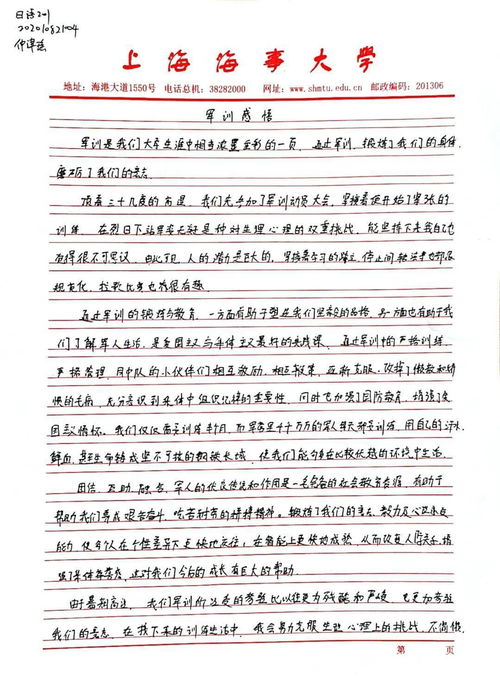 日语201
202010821004
上海海事大学
地址：海港大道1550号 电话总机：38282000 网址：www.shmtu.edu.cn 邮政编码：201306
军训感悟
军训是我们大学生涯中相当浓墨重彩的一页，通过军训，锻炼了我们的身体，
磨砺了我们的意志。
顶着三十几度的高温，我们先参加了军训动员大会，紧接着便开始了紧张的
训练。在烈日下站军姿无疑是种对生理心理的双重挑战，能坚持下来我自己也
觉得很不可思议，由此可见，人的潜力是巨大的，紧接着学习的
规范化，也很有趣。
通过军训的锻炼与教育，一方面有助于塑造我们坚毅的品格，另一方面也有助于我
们了解军人生活，是爱国主义与集体主义最好的实践课。通过军训中的严格训练，
严格管理，同中队的小伙伴们相互激励，相互帮助，改掉了懒散和骄
傲的毛病，充分意识到集体中组织纪律的重要性，同时也加强了国防教育，增强了爱
国主义情怀。我们仅仅需要训练半个月，而军营里千千万万的军人每天都要训练，用自己的汗水
鲜血，甚至生命铸成坚不可摧的钢铁长城，使我们能够在比较优越的环境中生活。
团结，互助，融合，军人的优良传统和作用是一笔宝贵的社会教育资源，有助于
帮助我们养成艰苦奋斗，吃苦耐劳的精神。锻炼了我们的意志、毅力及心理承受
能力，使今人在个性差异下更快地交往，在智能上更快地成熟，从而改良人际关系，增
强了集体荣誉感，这对我们今后的成长有巨大的帮助。
由于暑期高温，我们军训所接受的考验比以往更为残酷和严峻，也更加考验
我们的意志，在接下来的训练生活中，我会努力克服生理心理上的挑战，不
第 页